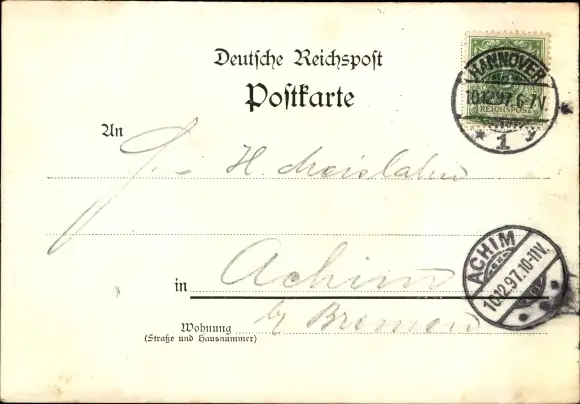 Deutsche Reichspost
Postkarte
HANNOVER
10.12.97.6-7V.
REICHSPOST
* 1 y
An
H.
ACHIM
10.12.97.10-11V.
in Achim
Wohnung by Bremen
(Straße und Hausnummer)